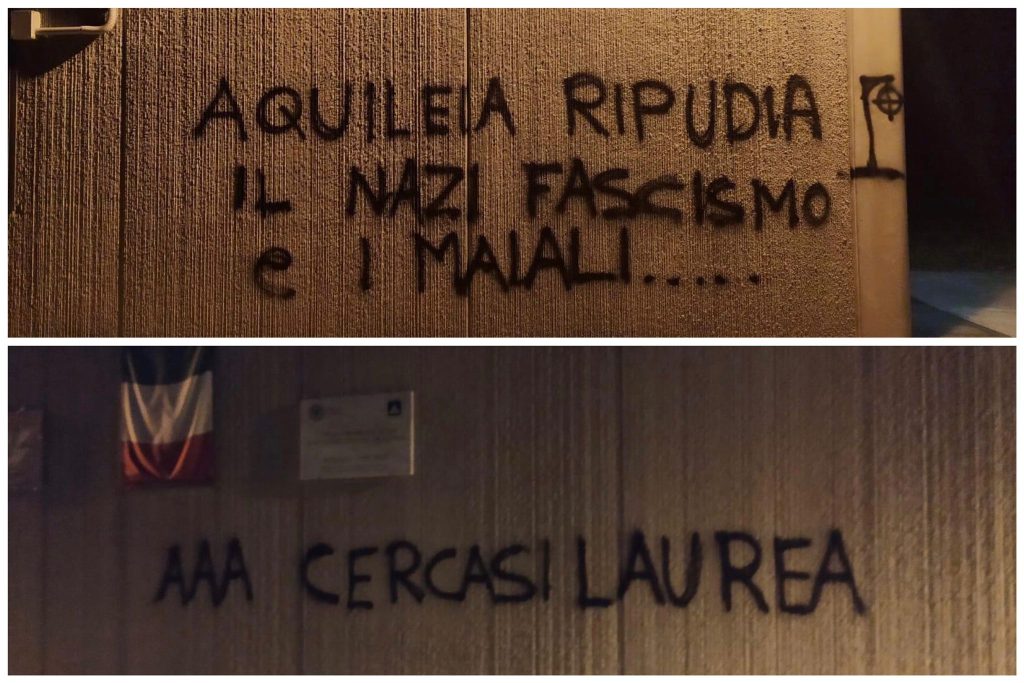 AQUILEIA RIPUDIA
IL NAZI FASCISMO
e I MAIALI......
AAA CERCASI LAUREA